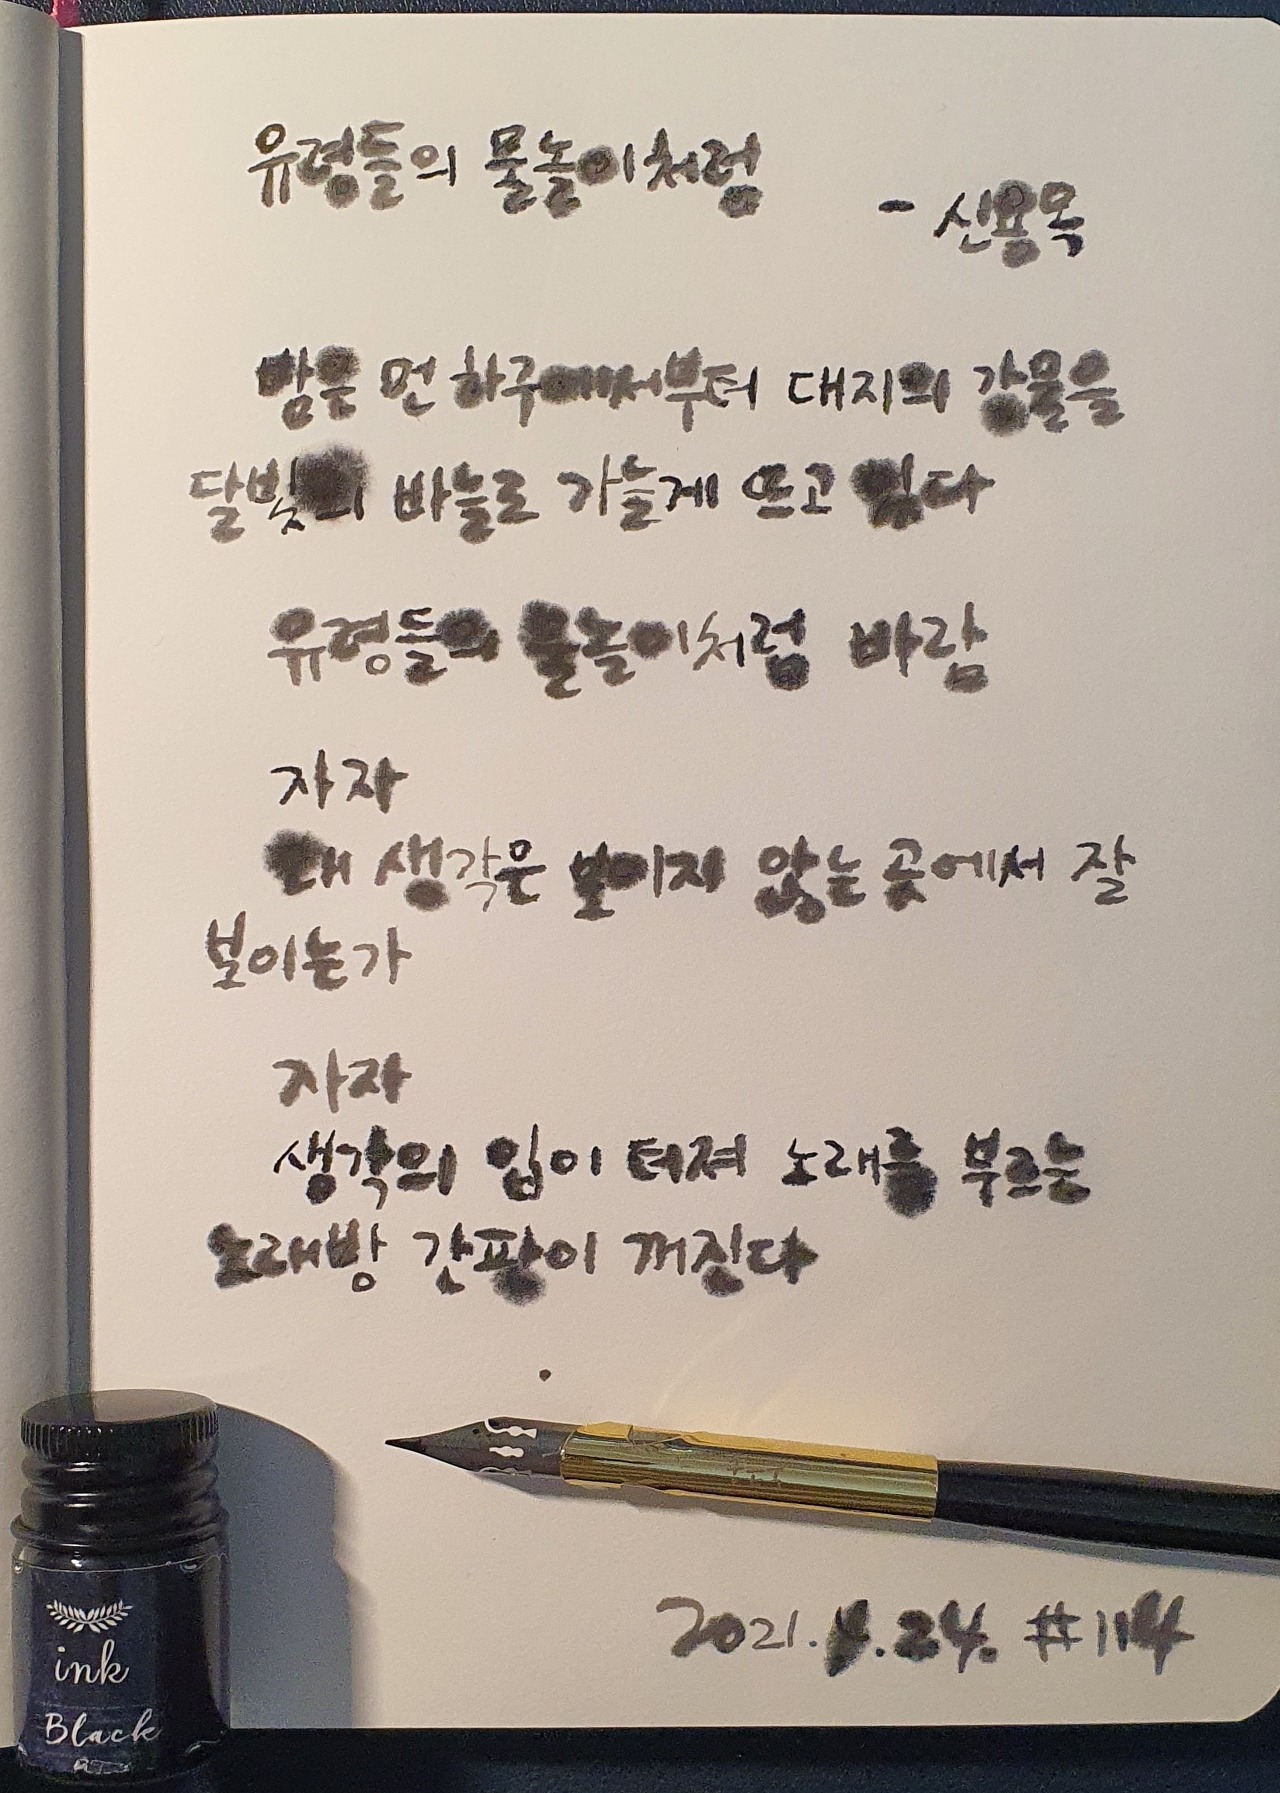 유령들의 물놀이처럼
- 신용목
밤은 먼 하구에서부터 대지의 강물을
달빛의 바늘로 가늘게 뜨고 있다
유령들의 물놀이처럼 바람
자자
왜 생각은 보이지 않는 곳에서 잘
보이는가
자자
생각의 입이 터져 노래를 부르는
노래방 간판이 꺼진다
2021.4.24. #114
ink
Black